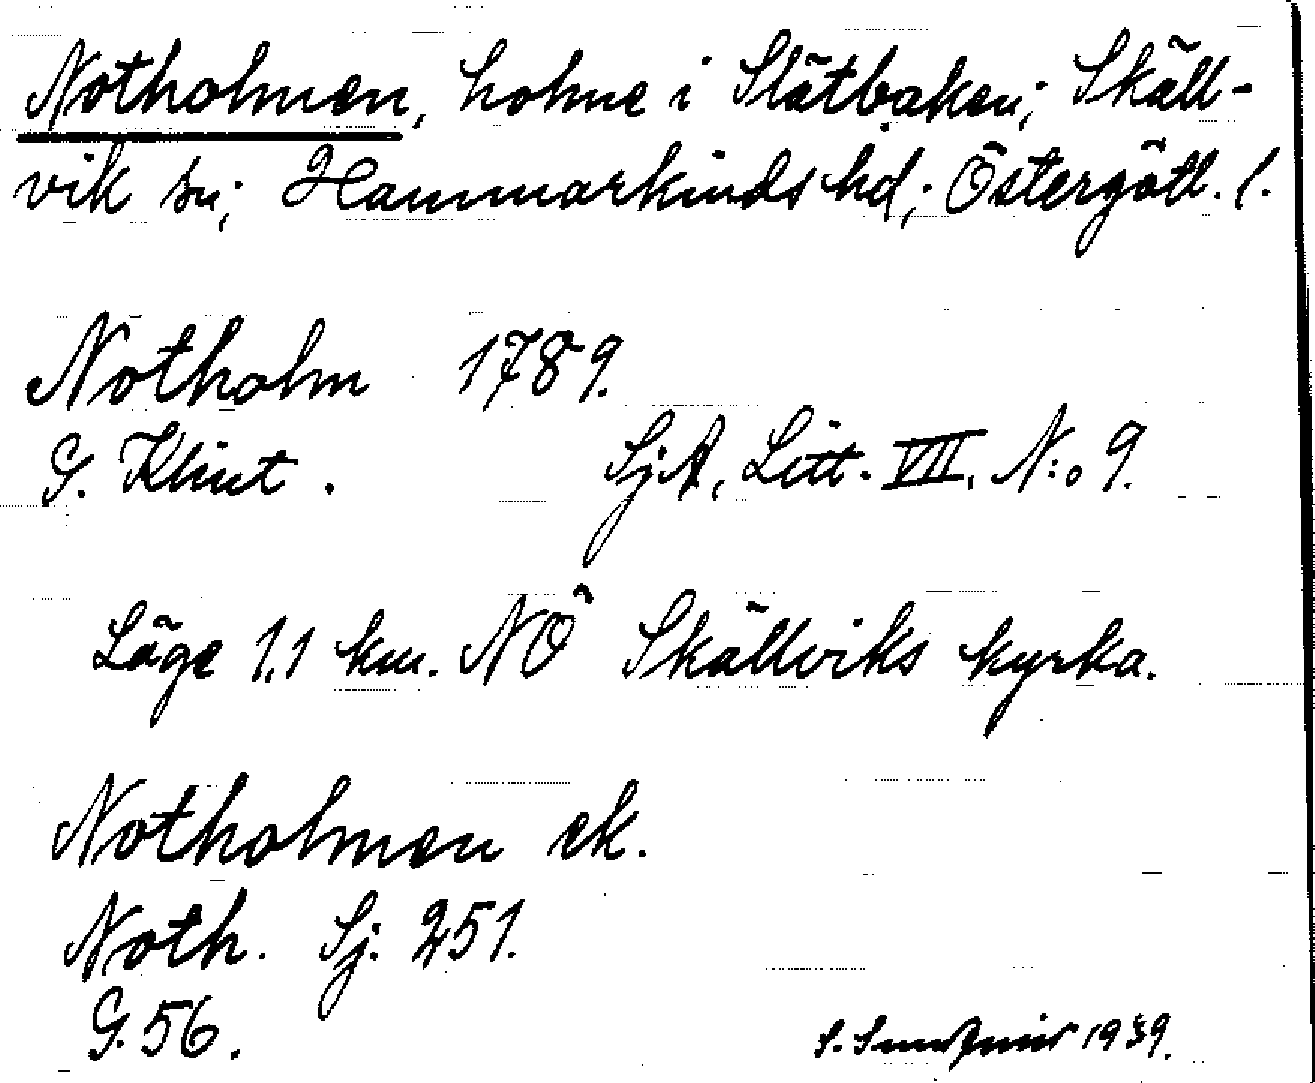 Notholmen, holme i Slätbaken; Skäll-
vik sn; Hammarkinds hd; Östergötl. l.
Notholm 1789.
G. Klint. SjA, Litt. VII. N:o 9.
Läge 1,1 km. NÖ Skällviks kyrka.
Notholmen ek.
Noth. Sj. 251.
G. 56.
S. 1939.